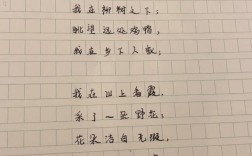 我在柳树之下；
眺望远处鸡鸭，
我在乡下人家；
我在田上看霞，
采了一朵野花；
花朵洁白无瑕，